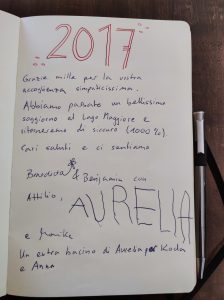 2017
Grazie mille per la vostra
accoglienza simpaticissima.
Abbiamo passato un bellissimo
soggiorno al Lago Maggiore e
ritorneremo di sicuro (1000%).
Cari saluti e ci sentiamo
Benedicta & Benjamin con
Attilio, AURELIA
e Monika
Un extra bacino di Aurelia per Koda
e Anna